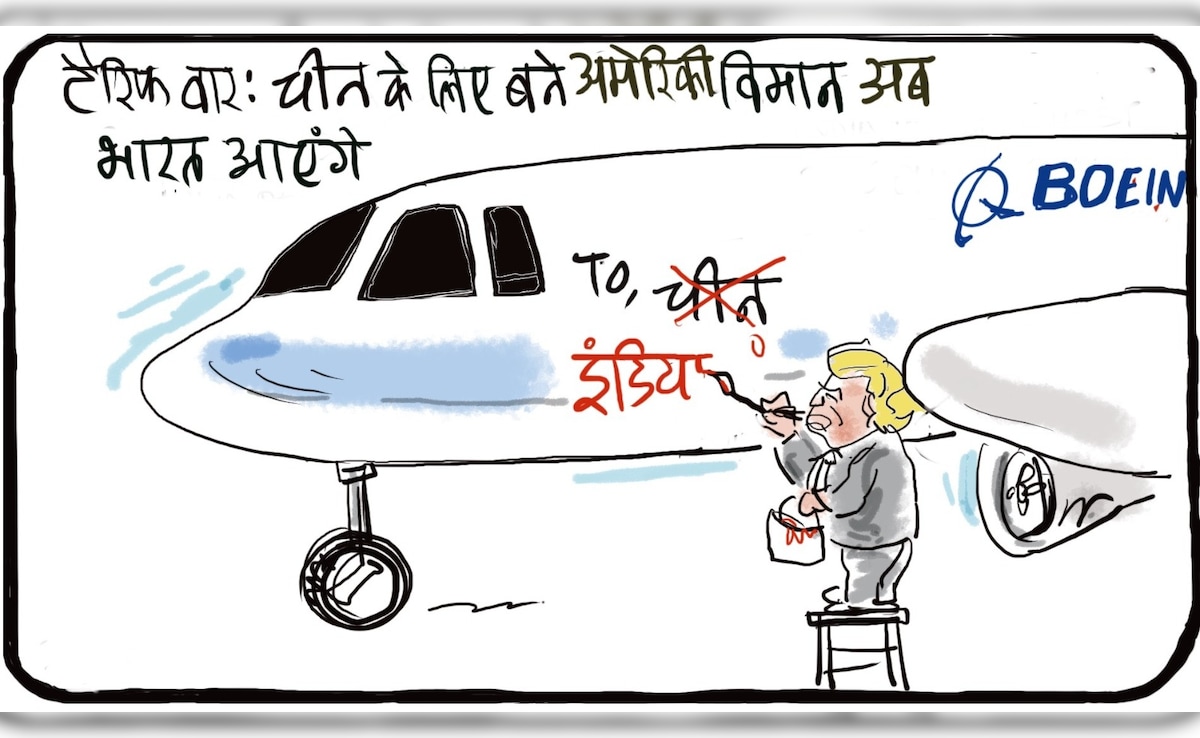 टैरिफ वार: चीन के लिए बने अमेरिकी विमान अब
भारत आएंगे
BOEIN
TO, चीन
इंडिया